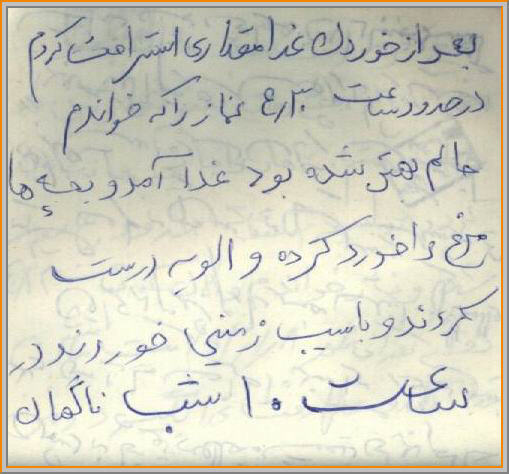 بعد از خوردن غذا مقداری استراحت کردم
در حدود ساعت ۴/۳۰ نماز را که خواندم
حالم بهتر شده بود غذا آمد و بچه‌ها
مرغ را خورد کرده و الویه درست
کردند و با سیب زمینی خوردند در
ساعت ۱۰ شب ناگهان